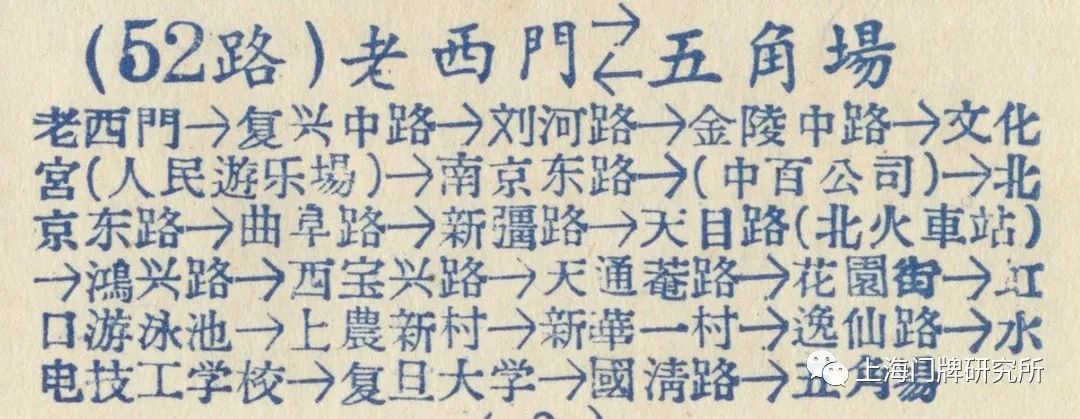 (52路)老西門⇄五角場
老西門→复兴中路→刘河路→金陵中路→文化
宮(人民遊乐場)→南京东路→(中百公司)→北
京东路→曲阜路→新彊路→天目路(北火車站)
→鴻兴路→西宝兴路→天通菴路→花園街→虹
口游泳池→上農新村→新華一村→逸仙路→水
电技工学校→复旦大学→國清路→五角場
上海门牌研究所